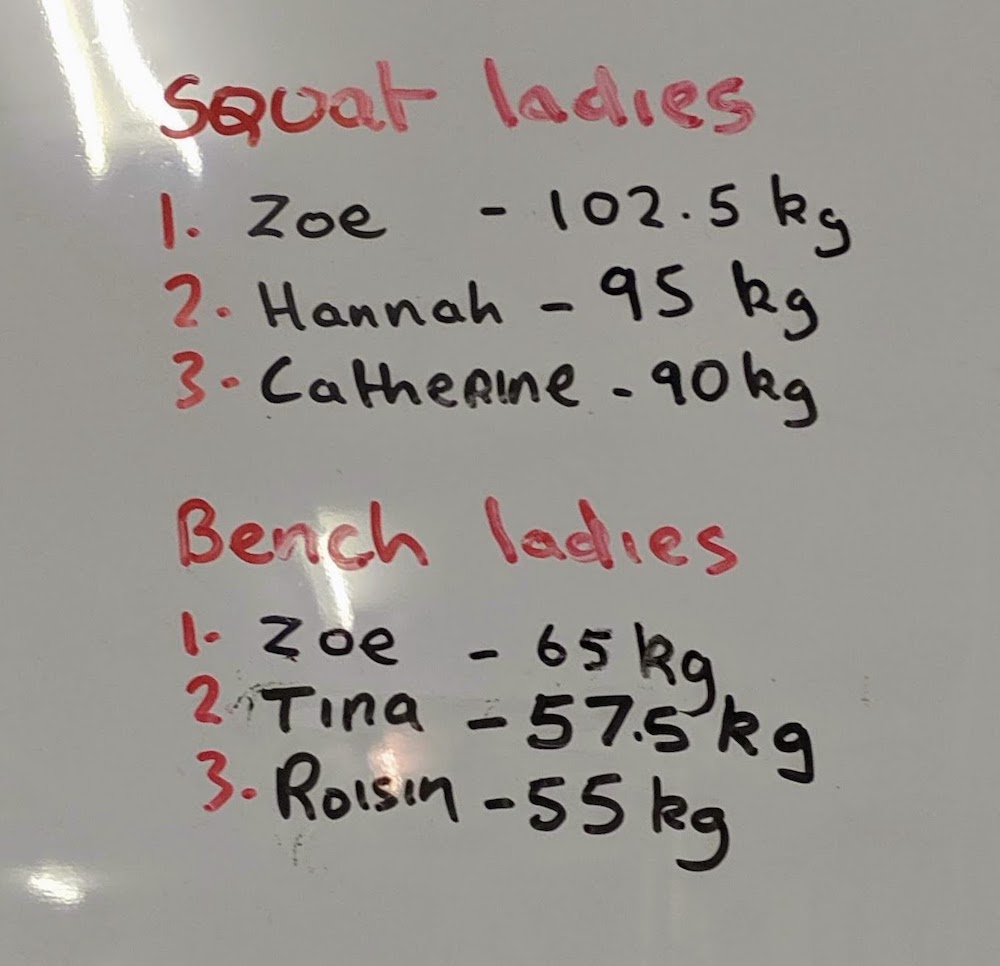 Squat ladies
1. Zoe - 102.5 kg
2. Hannah - 95 kg
3. Catherine - 90 kg
Bench ladies
1. Zoe - 65 kg
2. Tina - 57.5 kg
3. Roisin - 55 kg